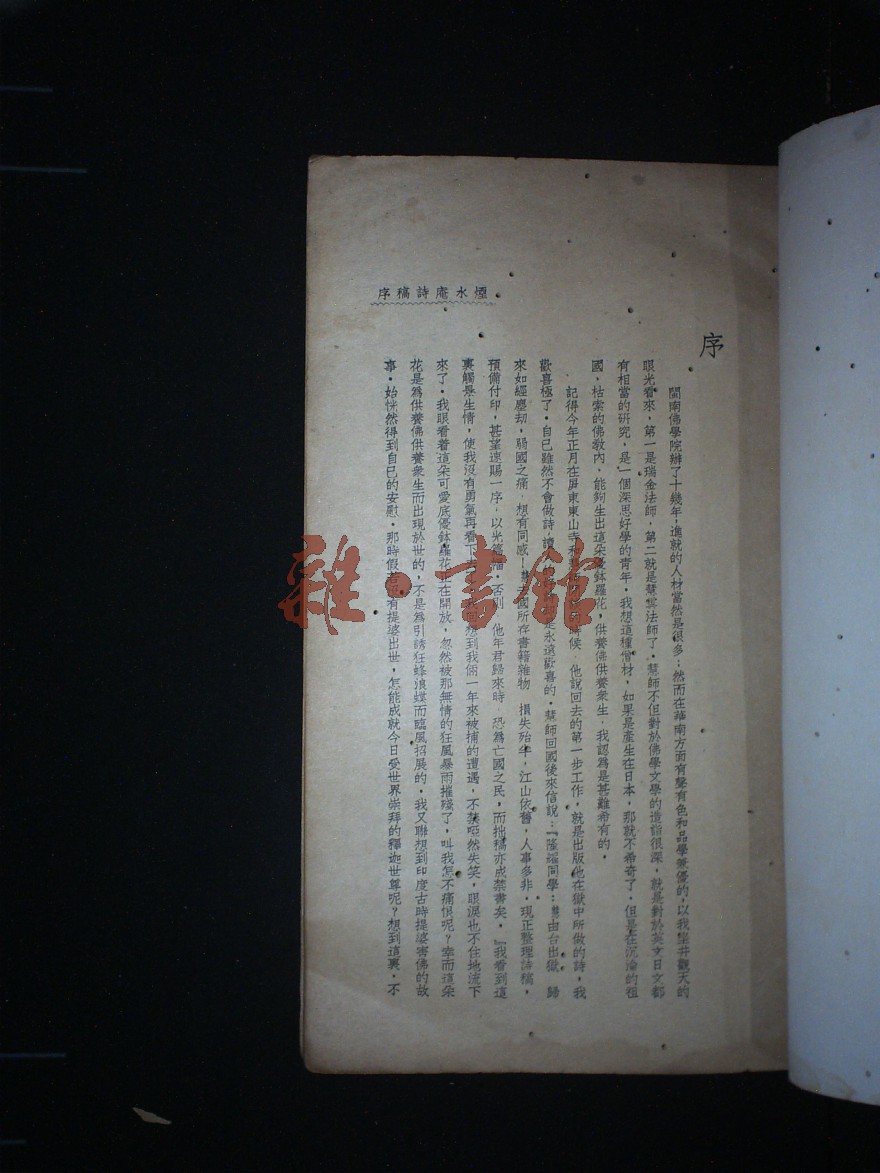 煙水庵詩稿序
序
閩南佛學院辦了十幾年，造就的人材當然是很多；然而在華南方面有聲有色和品學兼優的，以我坐井觀天的
眼光看來，第一是瑞金法師，第二就是慧雲法師了。慧師不但對於佛學文學的造詣很深，就是對於英文日文都
有相當的研究，是一個深思好學的青年。我想這種僧材，如果是產生在日本，那就不希奇了。但是在沉淪的祖
國，枯索的佛教內，能夠生出這朵優鉢羅花，供養佛供養衆生，我認爲是甚難希有的，
記得今年正月在屏東東山寺和 時候，他說回去的第一步工作，就是出版他在獄中所做的詩，我
歡喜極了。自己雖然不會做詩，讀 是永遠歡喜的。慧師回國後來信說：『隆耀同學：慧由台出獄 歸
來如經塵刧，觴國之痛，想有同感！慧去國所存書籍雜物 損失殆半，江山依舊，人事多非。現正整理詩稿，
預備付印，甚望遠賜一序，以光篇幅。否則 他年君歸來時，恐爲亡國之民，而拙稿亦成禁書矣。』我看到這
裏觸景生情，使我沒有勇氣再看下去 回想到我倆一年來被捕的遭遇，不禁啞然失笑，眼淚也不住地流下
來了。我眼看着這朵可愛底優鉢羅花正在開放，忽然被那無情的狂風暴雨摧殘了，叫我怎不痛恨呢？幸而這朵
花是爲供養佛供養衆生而出現於世的，不是爲引誘狂蜂浪蝶而臨風招展的。我又聯想到印度古時提婆害佛的故
事，始恍然得到自己的安慰。那時假若 有提婆出世，怎能成就今日受世界崇拜的釋迦世尊呢？想到這裏，不
雜·書館